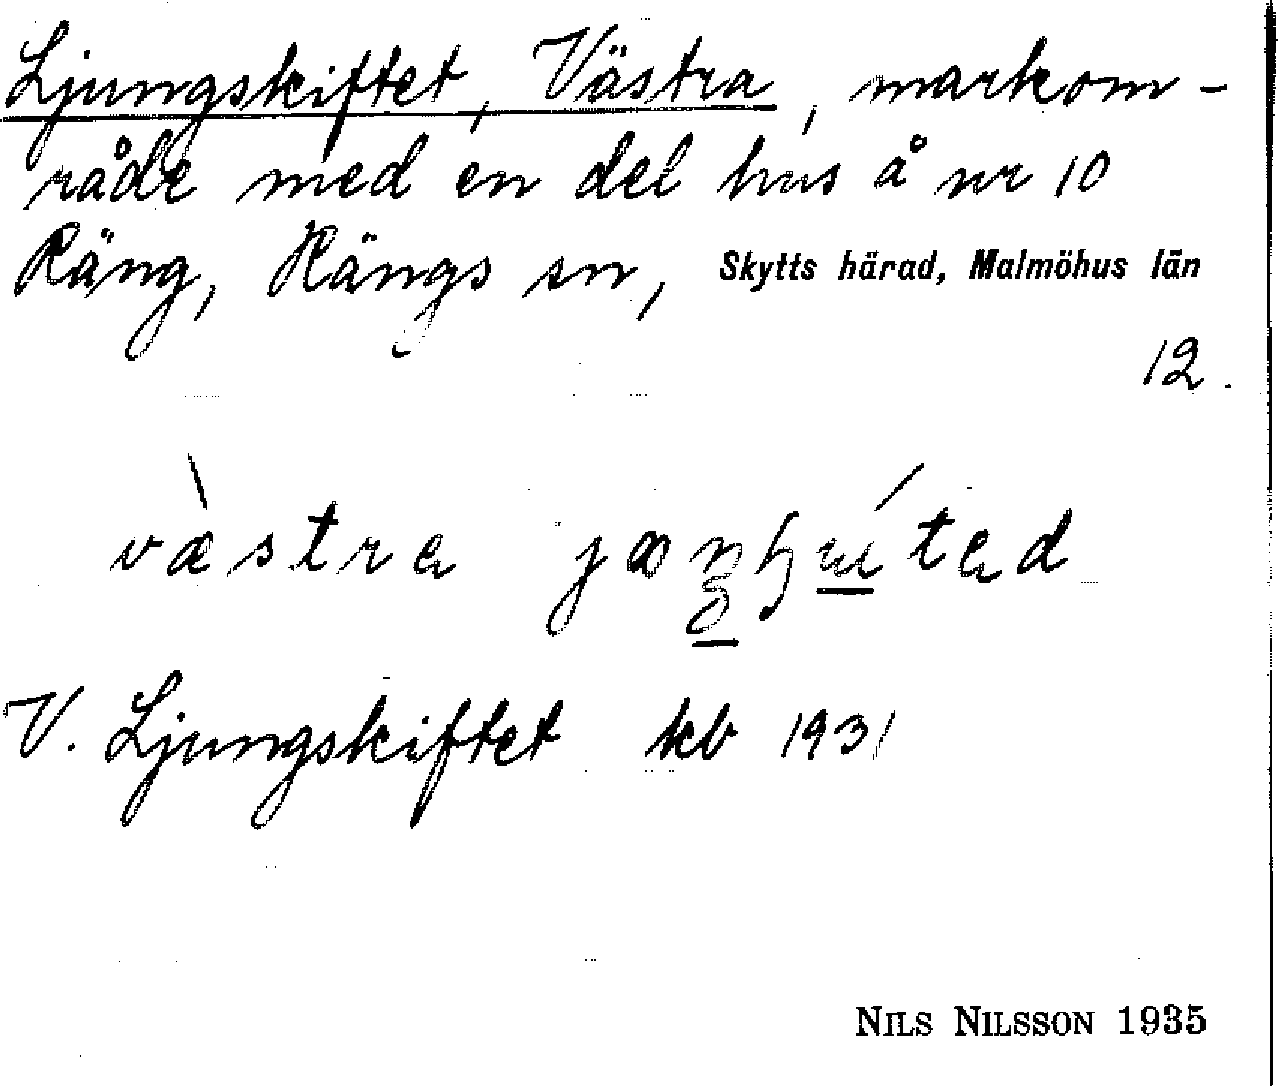 Ljungskiftet, Västra, markom-
råde med en del hus å nr 10
Räng, Rängs sn, Skytts härad, Malmöhus län
12.
västra
V. Ljungskiftet kb 1931
NILS NILSSON 1935